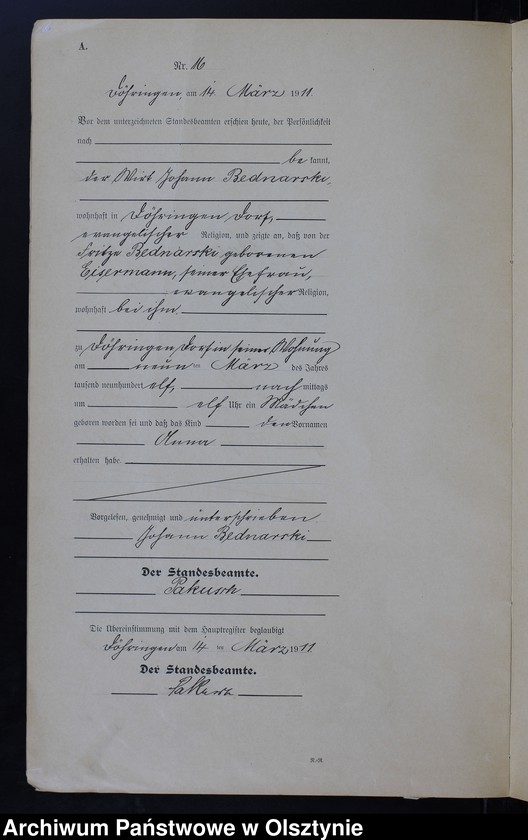 A.
Nr. 16
Döhringen, am 14 März 1911.
Vor dem unterzeichneten Standesbeamten erschien heute, der Persönlichkeit
nach
be kannt,
der Wirt Johann Bednarski,
wohnhaft in Döhringen Dorf,
evangelischer Religion, und zeigte an, daß von der
Bednarski geborenen
Eisermann, seiner Ehefrau,
evangelischer Religion,
wohnhaft bei ihm,
zu Döhringen Dorf in seiner Wohnung
am neun ten März des Jahres
tausend neunhundert elf, nach mittags
um elf Uhr ein Mädchen
geboren worden sei und daß das Kind den Vornamen
Anna
erhalten habe.
Vorgelesen, genehmigt und unterschrieben
Johann Bednarski
Der Standesbeamte.
Die Übereinstimmung mit dem Hauptregister beglaubigt
Döhringen am 14 ten März 1911.
Der Standesbeamte.
Archiwum Państwowe w Olsztynie